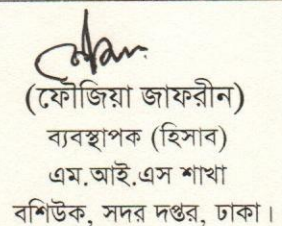 (ফৌজিয়া জাফরীন)
ব্যবস্থাপক (হিসাব)
এম.আই.এস শাখা
বশিউক, সদর দপ্তর, ঢাকা।